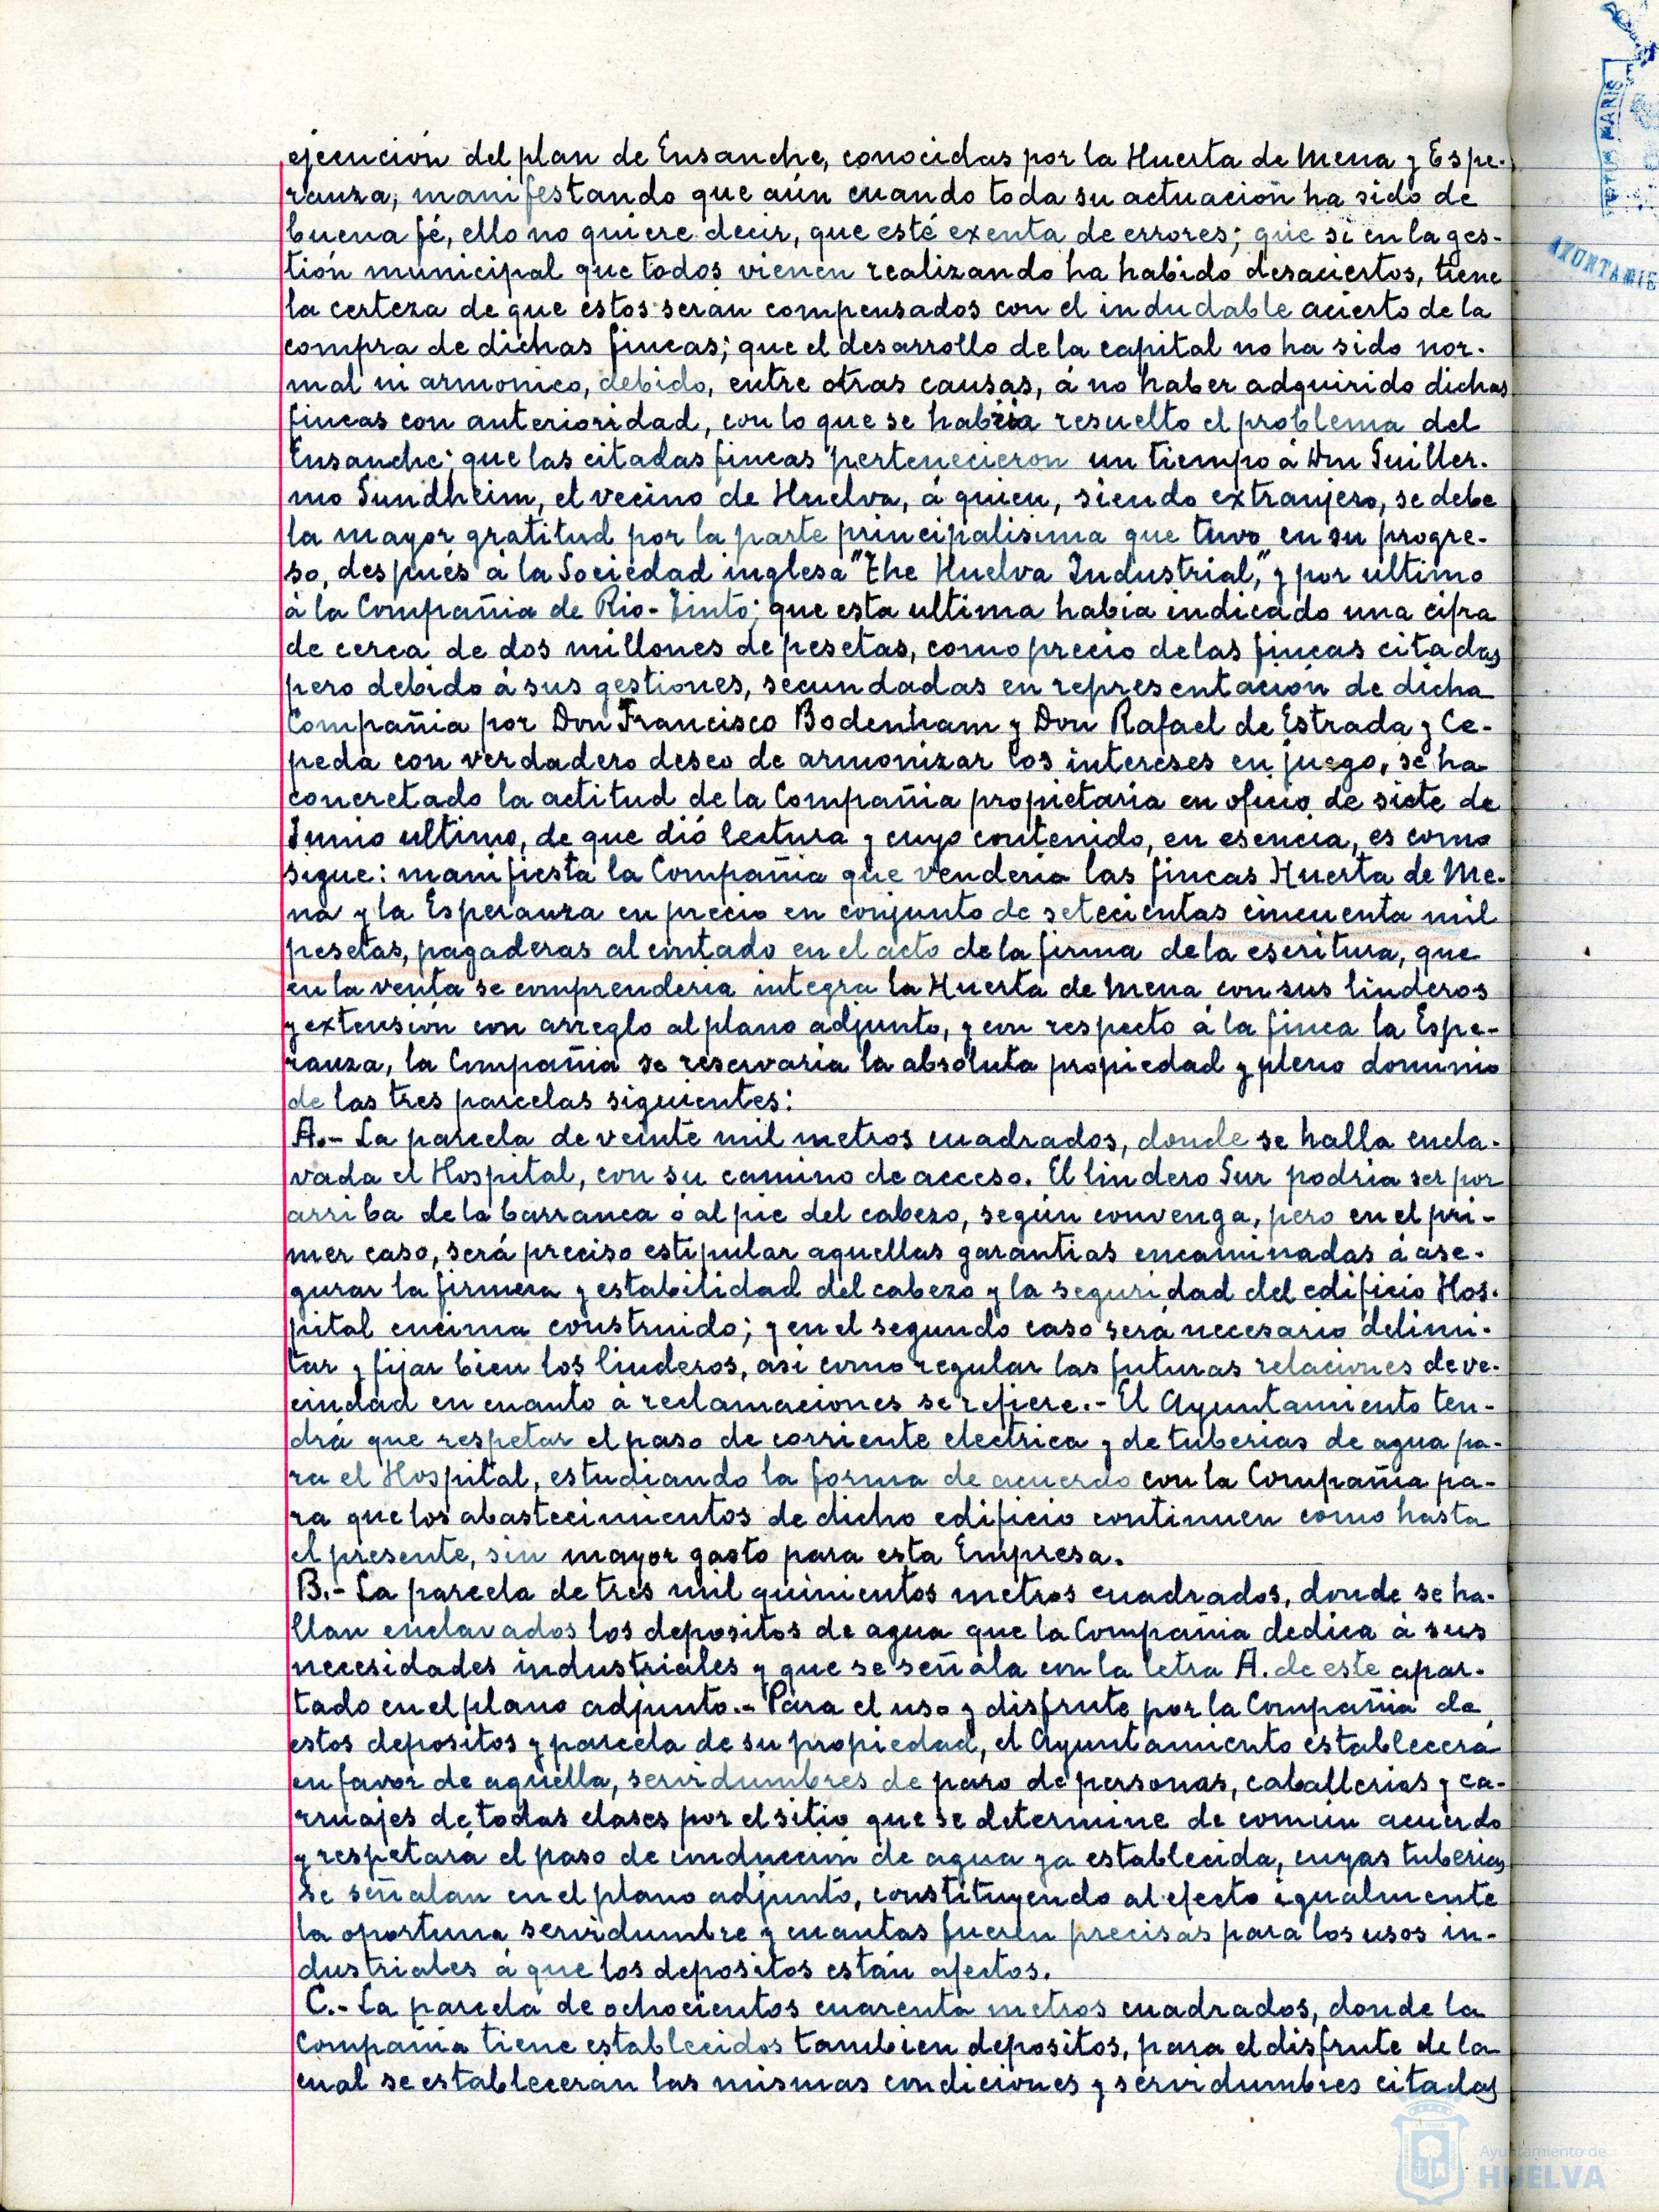 ejecución del plan de Ensanche, conocidas por la Huerta de Mena y Espe-
ranza, manifestando que aún cuando toda su actuación ha sido de
buena fé, ello no quiere decir, que esté exenta de errores; que si en la ges-
tión municipal que todos vienen realizando ha habido desaciertos, tiene
la certeza de que estos serán compensados con el indudable acierto de la
compra de dichas fincas; que el desarrollo de la capital no ha sido nor-
mal ni armonico, debido, entre otras causas, á no haber adquirido dichas
fincas con anterioridad, con lo que se habría resuelto el problema del
Ensanche; que las citadas fincas pertenecieron un tiempo á Don Guiller-
mo Sundheim, el vecino de Huelva, á quien, siendo extranjero, se debe
la mayor gratitud por la parte principalisima que tuvo en su progre-
so, después á la Sociedad inglesa "The Huelva Industrial," y por ultimo
á la Compañia de Rio-Tinto; que esta ultima había indicado una cifra
de cerca de dos millones de pesetas, como precio de las fincas citadas
pero debido á sus gestiones, secundadas en representación de dicha
Compañia por Don Francisco Bodenham y Don Rafael de Estrada y Ce-
peda con verdadero deseo de armonizar los intereses en juego, se ha
concretado la actitud de la Compañia propietaria en oficio de siete de
Junio ultimo, de que dió lectura y cuyo contenido, en esencia, es como
sigue: manifiesta la Compañia que vendería las fincas Huerta de Me-
na y la Esperanza en precio en conjunto de setecientas cincuenta mil
pesetas, pagaderas al contado en el acto de la firma de la escritura, que
en la venta se comprendería integra la Huerta de Mena con sus linderos
y extensión con arreglo al plano adjunto, y con respecto á la finca la Espe-
ranza, la Compañia se reservaria la absoluta propiedad y pleno dominio
de las tres parcelas siguientes:
A.- La parcela de veinte mil metros cuadrados, donde se halla encla-
vada el Hospital, con su camino de acceso. El lindero Sur podria ser por
arriba de la barranca ó al pie del cabezo, según convenga, pero en el pri-
mer caso, será preciso estipular aquellas garantias encaminadas á ase-
gurar la firmeza y estabilidad del cabezo y la seguridad del edificio Hos-
pital encima construido; y en el segundo caso será necesario delimi-
tar y fijar bien los linderos, asi como regular las futuras relaciones de ve-
cindad en cuanto á reclamaciones se refiere.- El Ayuntamiento ten-
drá que respetar el paso de corriente electrica y de tuberias de agua pa-
ra el Hospital, estudiando la forma de acuerdo con la Compañia pa-
ra que los abastecimientos de dicho edificio continuen como hasta
el presente, sin mayor gasto para esta Empresa.
B.- La parcela de tres mil quinientos metros cuadrados, donde se ha-
llan enclavados los depositos de agua que la Compañia dedica á sus
necesidades industriales y que se señala con la letra A. de este apar-
tado en el plano adjunto.- Para el uso y disfrute por la Compañia de
estos depositos y parcela de su propiedad, el Ayuntamiento establecerá
en favor de aquella, servidumbres de paso de personas, caballerias y ca-
rruajes de todas clases por el sitio que se determine de común acuerdo
y respetará el paso de conducción de agua ya establecida, cuyas tuberias
se señalan en el plano adjunto, constituyendo al efecto igualmente
la oportuna servidumbre y cuantas fueren precisas para los usos in-
dustriales á que los depositos están afectos.
C.- La parcela de ochocientos cuarenta metros cuadrados, donde la
Compañia tiene establecidos tambien depositos, para el disfrute de la
cual se establecerán las mismas condiciones y servidumbres citadas
MARIS
AYUNTAMIE
Ayuntamiento de
HUELVA